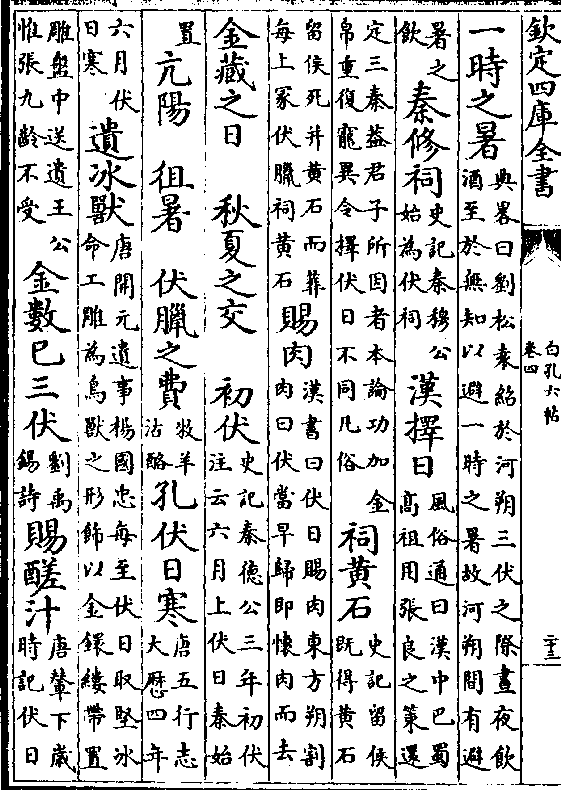 欽定四庫全書 白孔六帖 卷四 二十三
一時之暑 典畧曰劉松袁紹於河朔三伏之際晝夜飲酒至於無知以避一時之暑故河朔間有避
暑之飲 秦修祠 史記秦穆公始為伏祠 漢擇日 風俗通曰漢中巴蜀高祖用張良之策還
定三秦益君子所因者本論功加金帛重復寵異令擇伏日不同凡俗 祠黃石 史記留侯既得黃石
留侯死并黃石而葬每上冢伏臘祠黃石 賜肉 漢書曰伏日賜肉東方朔割肉曰伏當早歸即懷肉而去
金藏之日 秋夏之交 初伏 史記秦德公三年初伏注云六月上伏日秦始
置 亢陽 徂暑 伏臘之費 牧羊沽酪 孔伏日寒 唐五行志大厯四年
六月伏日寒 遺冰獸 唐開元遺事楊國忠每至伏日取堅冰命工雕為鳥獸之形飾以金鐶縷帶置
雕盤中送遺王公惟張九齡不受 金數巳三伏 劉禹錫詩 賜醝汁 唐輦下歲時記伏日